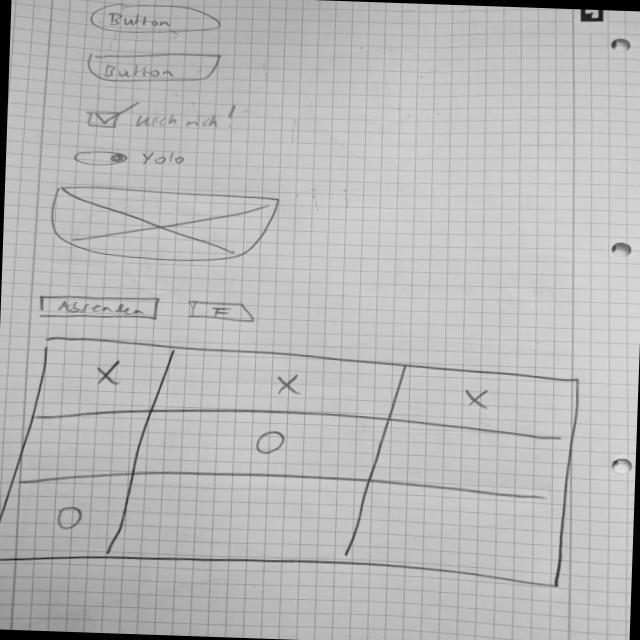 Button
Button
Klick mich!
Yolo
Absenden F
X X X
O
O